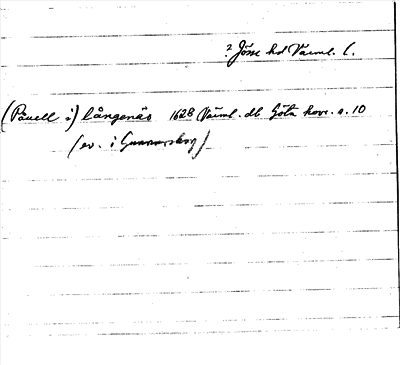 ? Jösse hd Värml. l.
(Påuell i) Långenäs 1628 Värml. db Göta hovr. s. 10
(ev. i Gunnarskog)